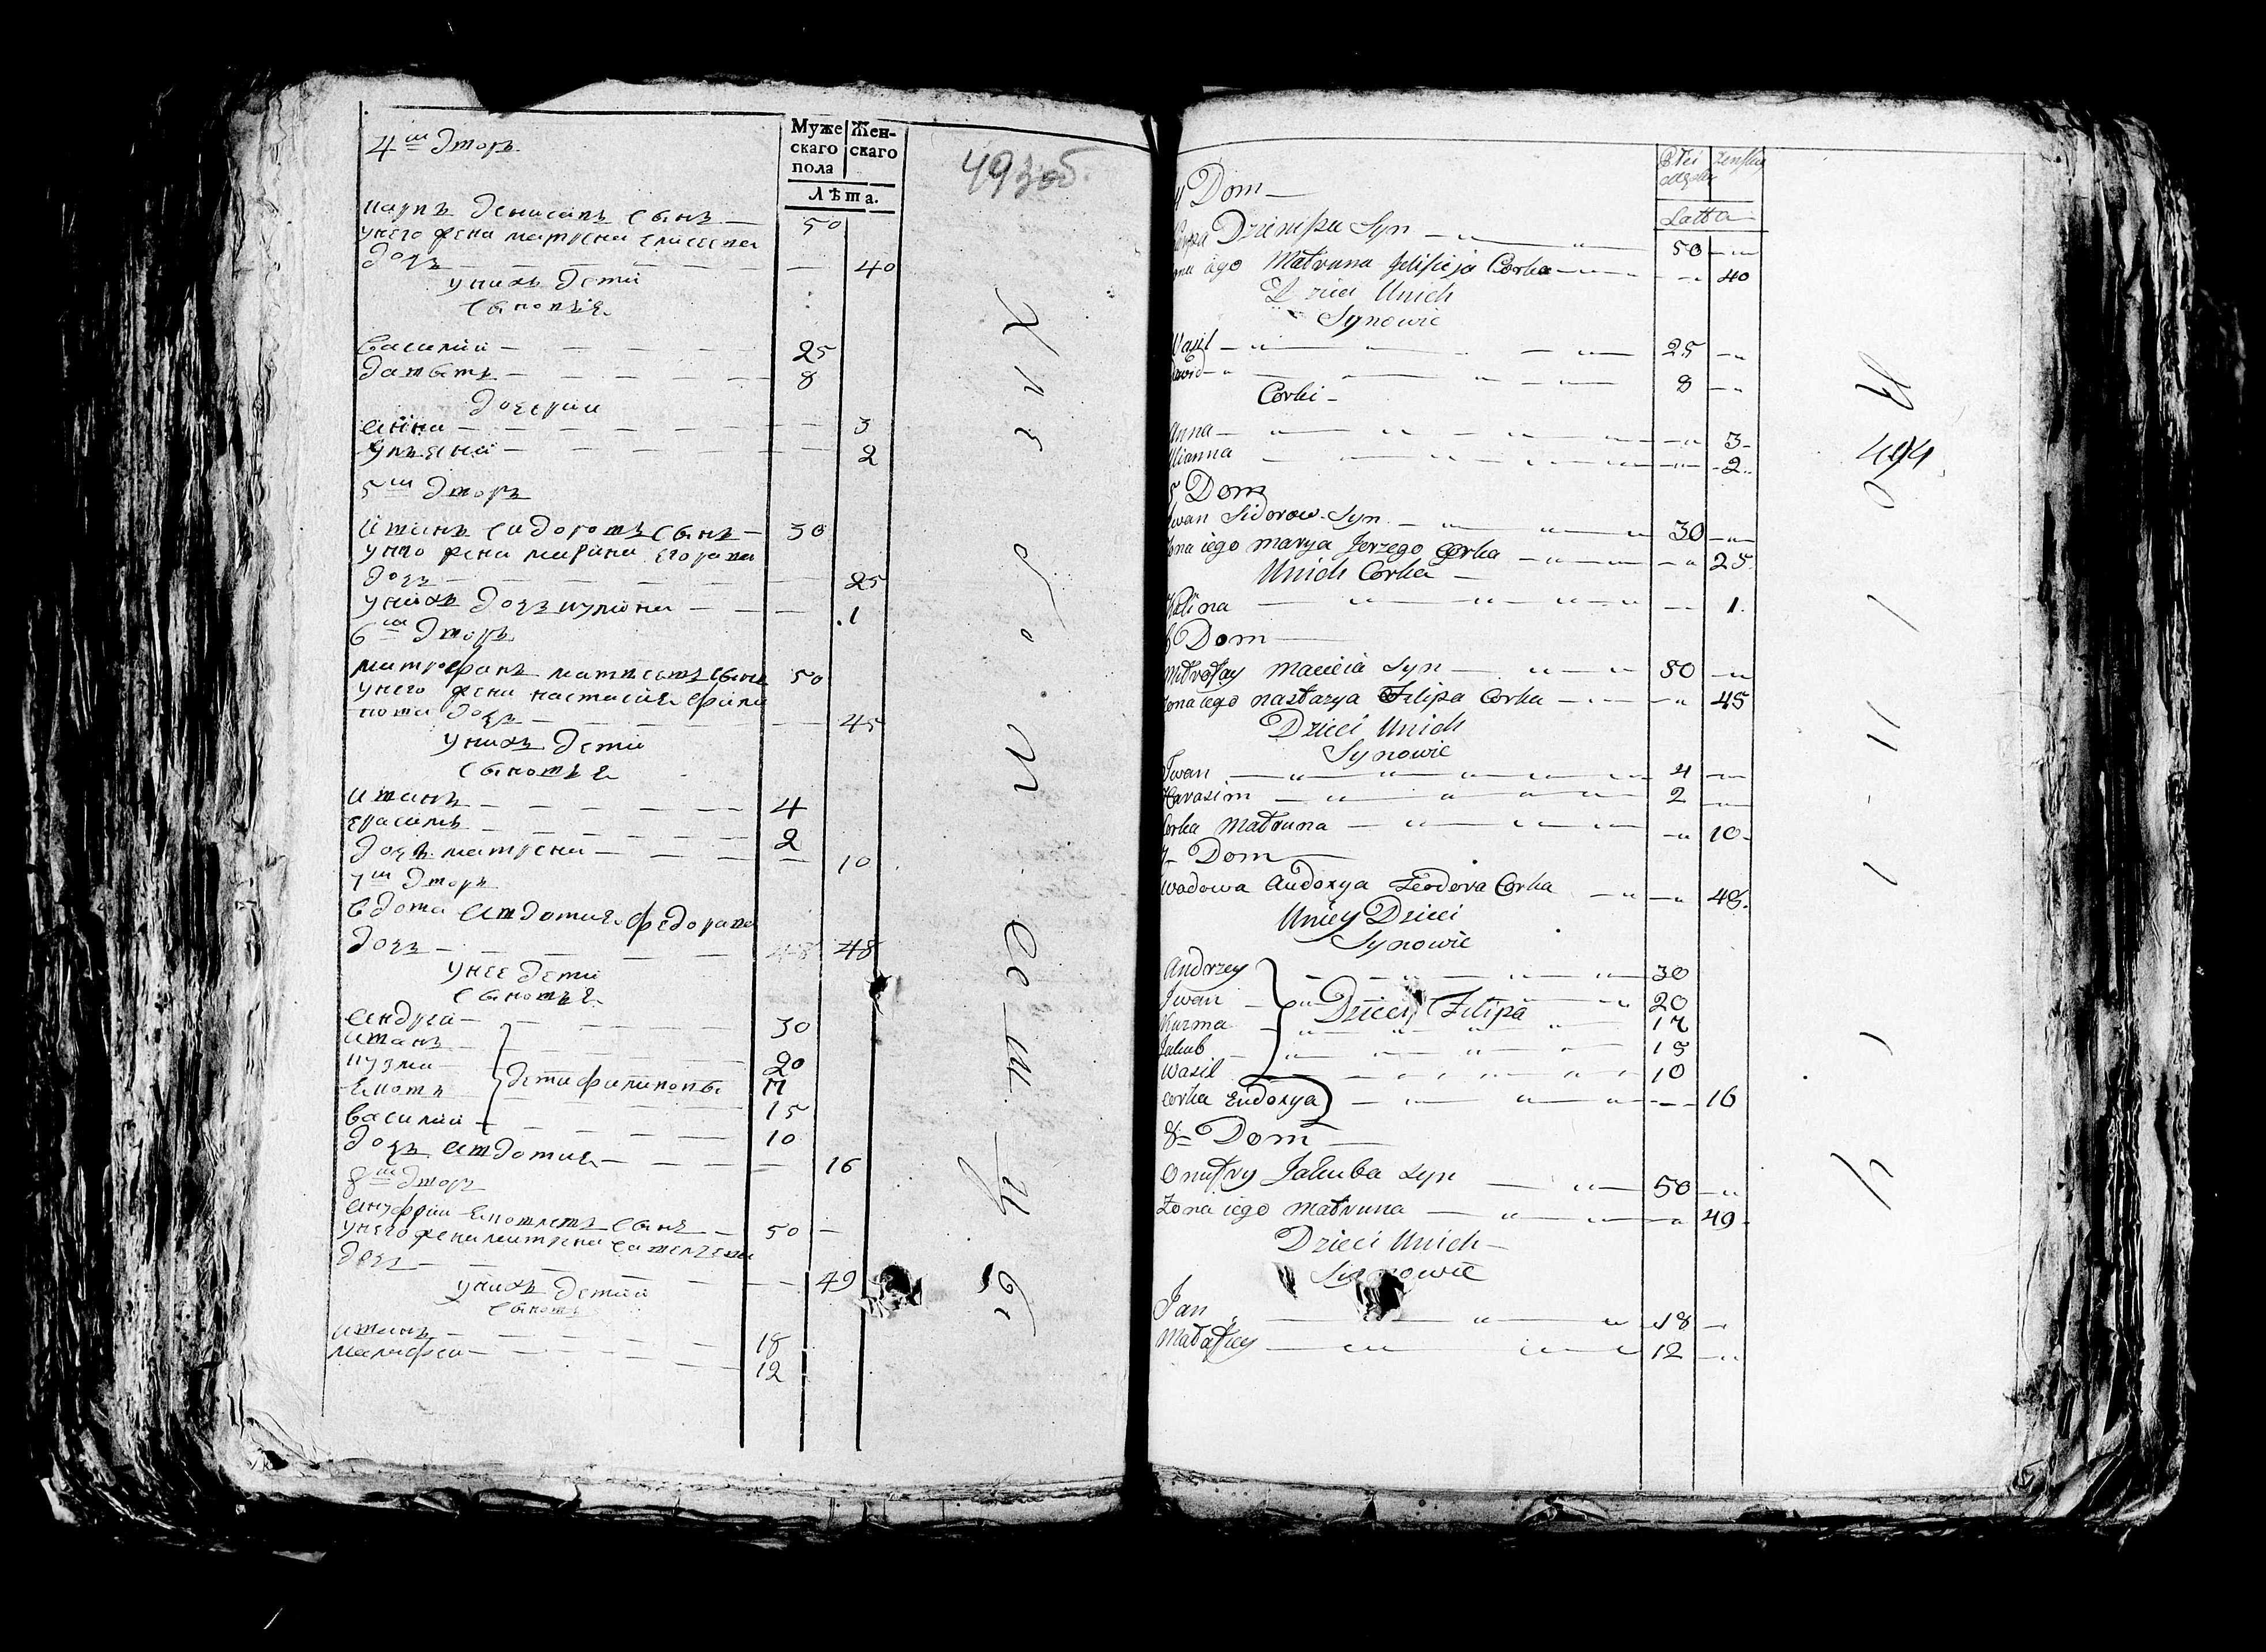 Муже Жен-
скаго скаго
пола
Лѣта.
493об.
4й дворъ
Карпъ денисавъ сынъ — 50
у него жена матрена елисеева
дочь — 40
у нихъ дети
сыновья
василий — 25
давыдъ — 8
дочерии
анна — 3
ульяна — 2
5й дворъ
иванъ сидоровъ сынъ — 30
у него жена марина егорава
дочь — 25
у нихъ дочь кулина — 1
6й дворъ
митрофанъ матвеевъ сынъ 50
у него жена настасия фили
пова дочь — 45
у нихъ дети
сыновья
иванъ — 4
ерасимъ — 2
дочь матрена — 10
7й дворъ
вдова авдотия федорава
дочь — 48 48
у нее дети
сыновья
андреи — 30
иванъ — 20
кузма — 17
дети филиповы
василий — 10
15
дочь авдотия — 16
8й дворъ
ануфрии сынъ — 50 —
у него жена матрена савельева
дочь — 49
у нихъ детии
сыновья
иванъ — 18
малафеи — 12
Płci męskiey żenskiey
Latta
4 Dom —
Karpa Dzienisza Syn — 50
Zona iego Matruna Jelisieja Corka — 40
Dzieci Unich
Synowie
Wasil — 25
Dawid — 8
Corki —
Anna — 3
Ulianna — 2
494
5 Dom
Iwan Sidorow Syn — 30
Zona iego marya Jerzego Corka — 25
Unich Corka —
Kulina — 1
6 Dom —
Mitrofay Macieia Syn — 50
Zona iego nastazya Filipa Corka — 45
Dzieci Unich
Synowie
Iwan — 4
Harasim — 2
Corka Matruna — 10
7 Dom —
Wadowa Audoxya Feodora Corka — 48
Uniey Dzieci
Synowie
Andrzey — 30
Iwan — Dzieci Filipa — 20
Kuzma — 17
Jakub — 15
Wasil — 10
Corka Eudoxya — 16
8 Dom —
Onufry Jakuba Syn — 50
Zona iego Matruna — 49
Dzieci Unich —
Synowie
Jan — 18
Matafiey — 12